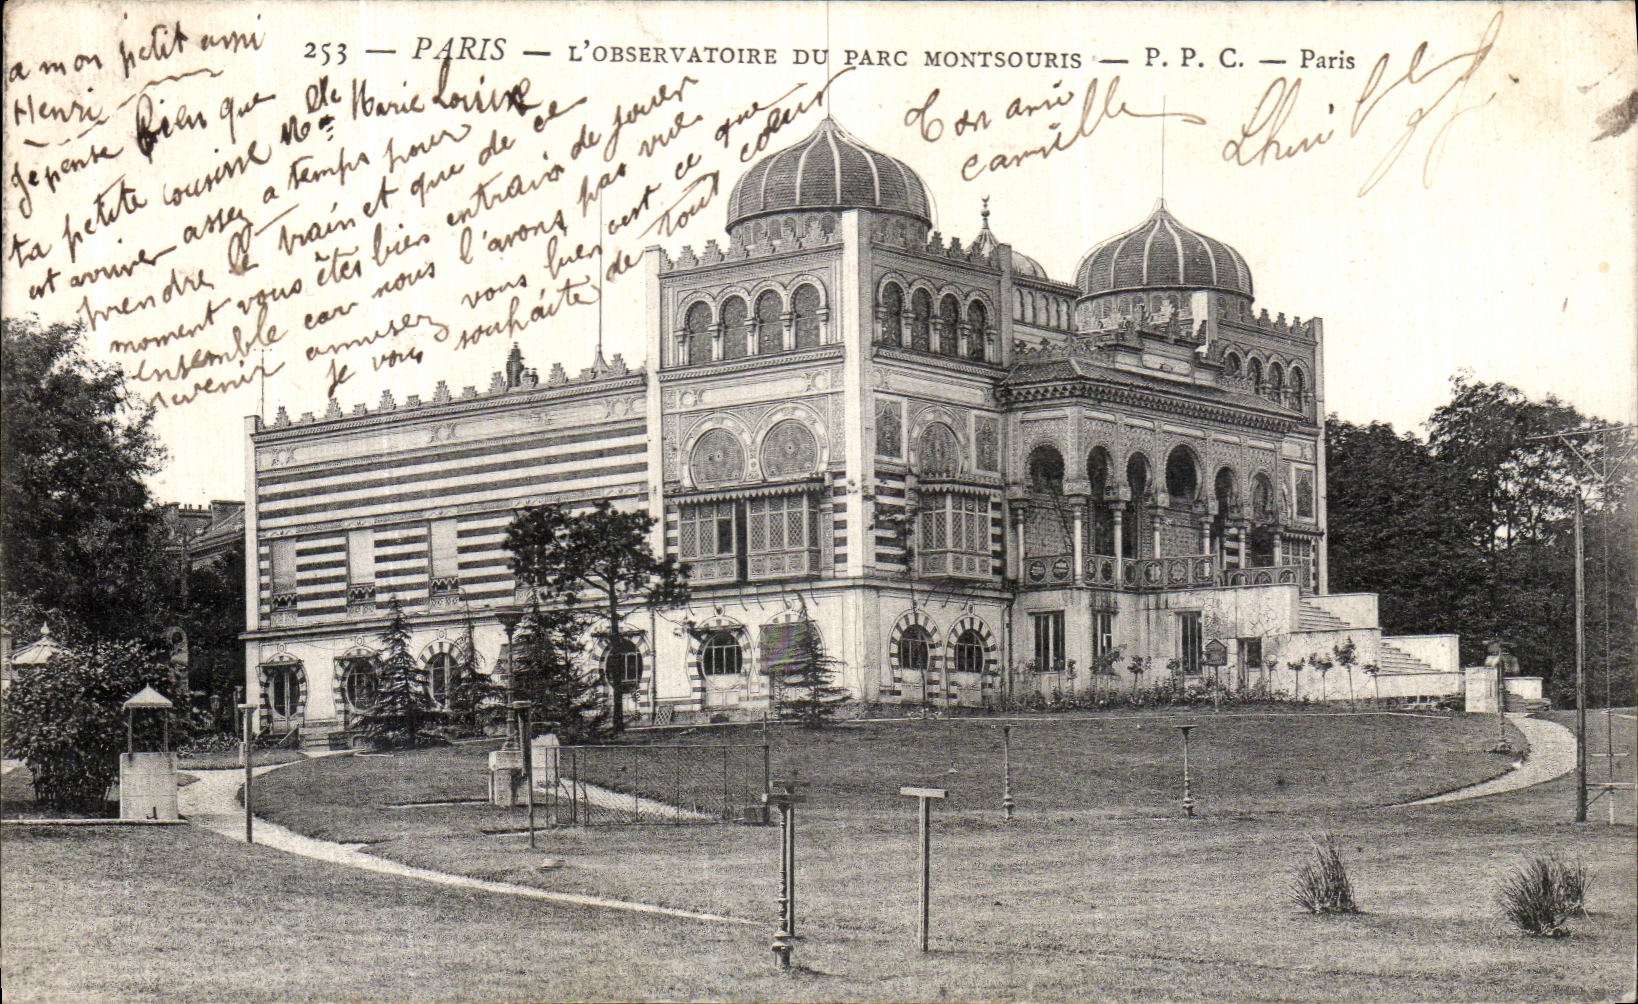 253 — PARIS — L'OBSERVATOIRE DU PARC MONTSOURIS — P. P. C. — Paris
a mon petit ami
Henri
Je pense bien que
ta petite cousine Mlle Marie Louise
est arriver assez a temps pour
prendre le train et que de ce
moment vous êtes bien entrain de jouer
ensemble car nous l'avons pas vue
revenir amusez vous bien cest ce que
je vous souhaite de tout coeur
Ton ami
Camille